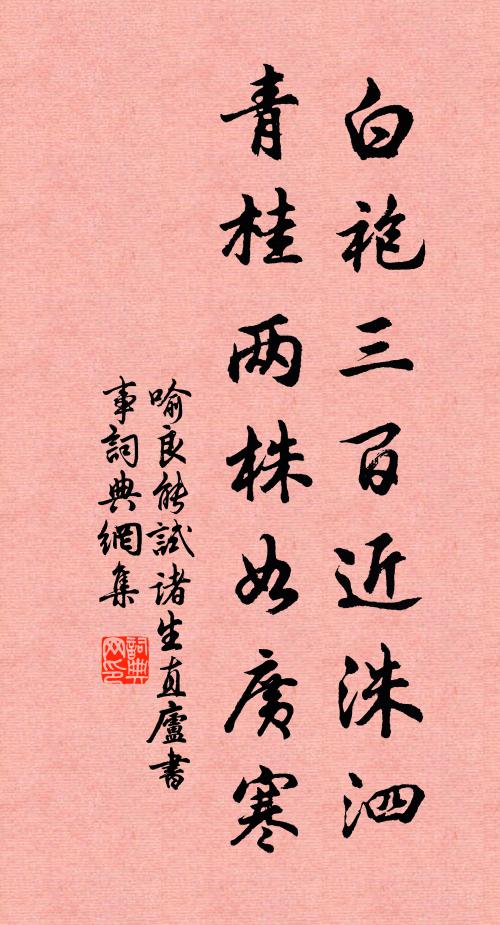 白袍三百近洙泗
青桂两株如廣寒
喻良能試诸生直廬書
事詞典網集
詞典
网印